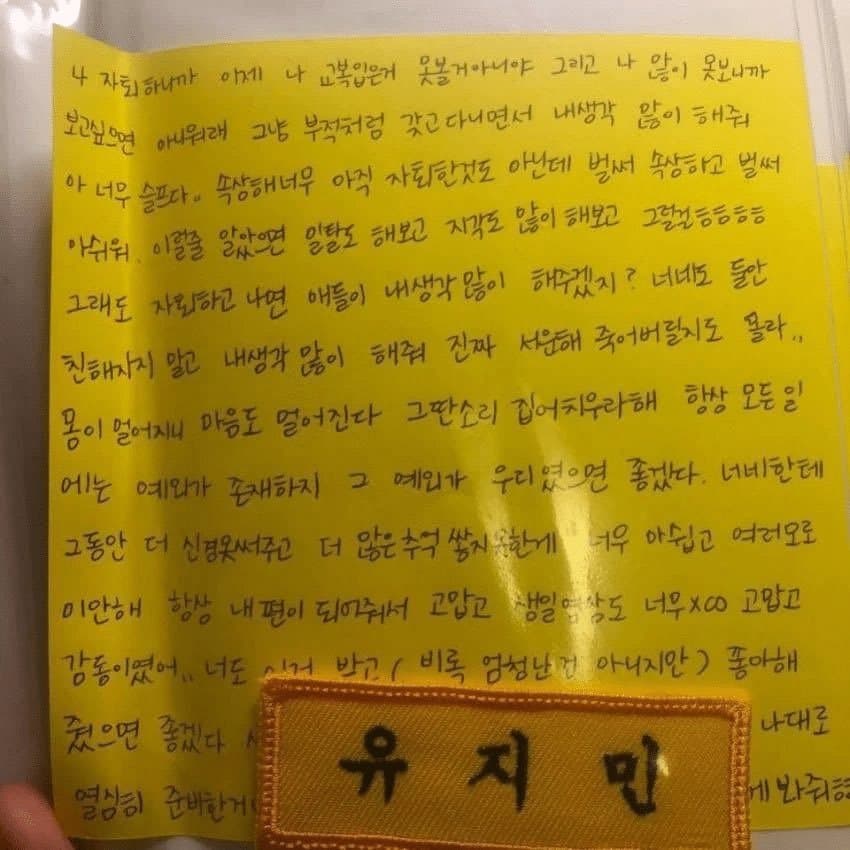 나 자퇴하니까 이제 나 교복입은거 못볼거아니야 그리고 나 많이 못보니까
보고싶으면 아니뭐래 그냥 부적처럼 갖고다니면서 내생각 많이 해줘
아 너무 슬프다. 속상해너무 아직 자퇴한것도 아닌데 벌써 속상하고 벌써
아쉬워. 이럴줄 알았으면 일탈도 해보고 지각도 많이 해보고 그럴걸ㅎㅎㅎㅎ
그래도 자퇴하고 나면 애들이 내생각 많이 해주겠지? 너네도 둘만
친해지지 말고 내생각 많이 해줘 진짜 서운해 죽어버릴지도 몰라..
몸이 멀어지니 마음도 멀어진다 그딴소리 집어치우라해 항상 모든일
에는 예외가 존재하지 그 예외가 우리였으면 좋겠다. 너네한테
그동안 더 신경못써주고 더 많은추억 쌓지못한게 너무 아쉽고 여러모로
미안해 항상 내편이 되어줘서 고맙고 생일영상도 너무x00 고맙고
감동이였어.. 너도 이거 받고 (비록 엄청난건 아니지만) 좋아해
줬으면 좋겠다 나대로
열심히 준비한거니 게봐줘ㅎㅎ
유지민